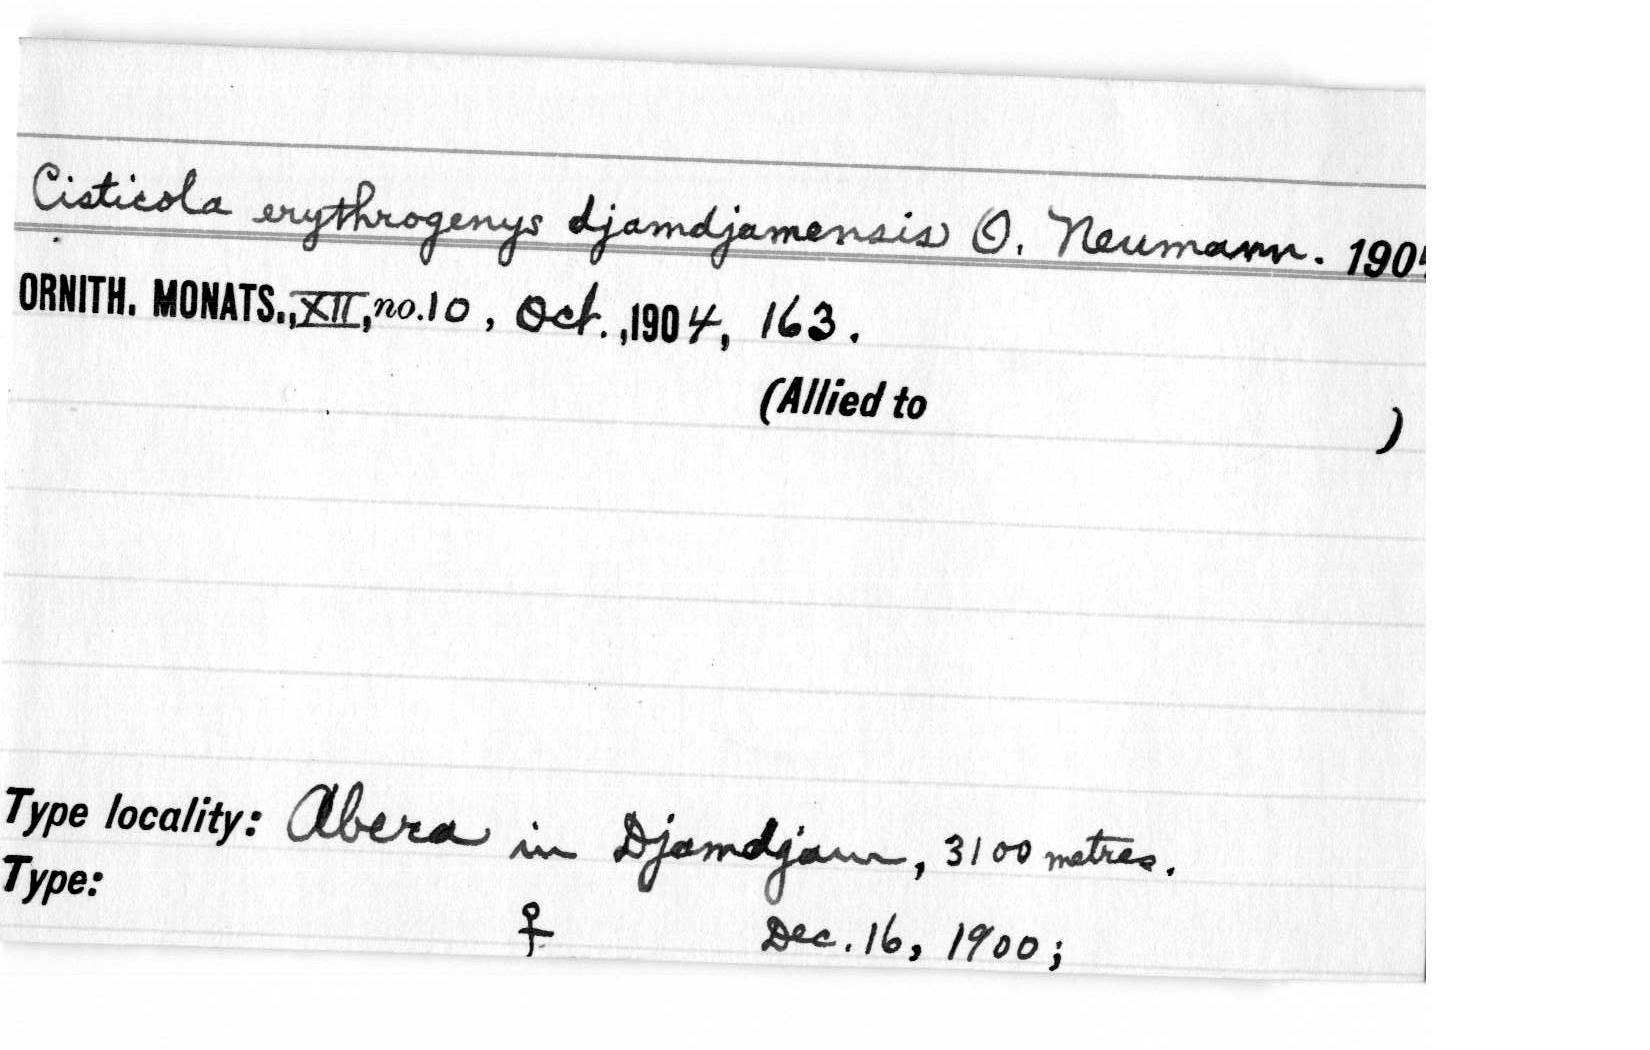 Cisticola erythrogenys djamdjamensis O. Neumann. 190
ORNITH. MONATS., XII, no. 10, Oct., 1904, 163.
(Allied to )
Type locality: Abera in Djamdjam, 3100 metres.
Type:
♀ Dec. 16, 1900;